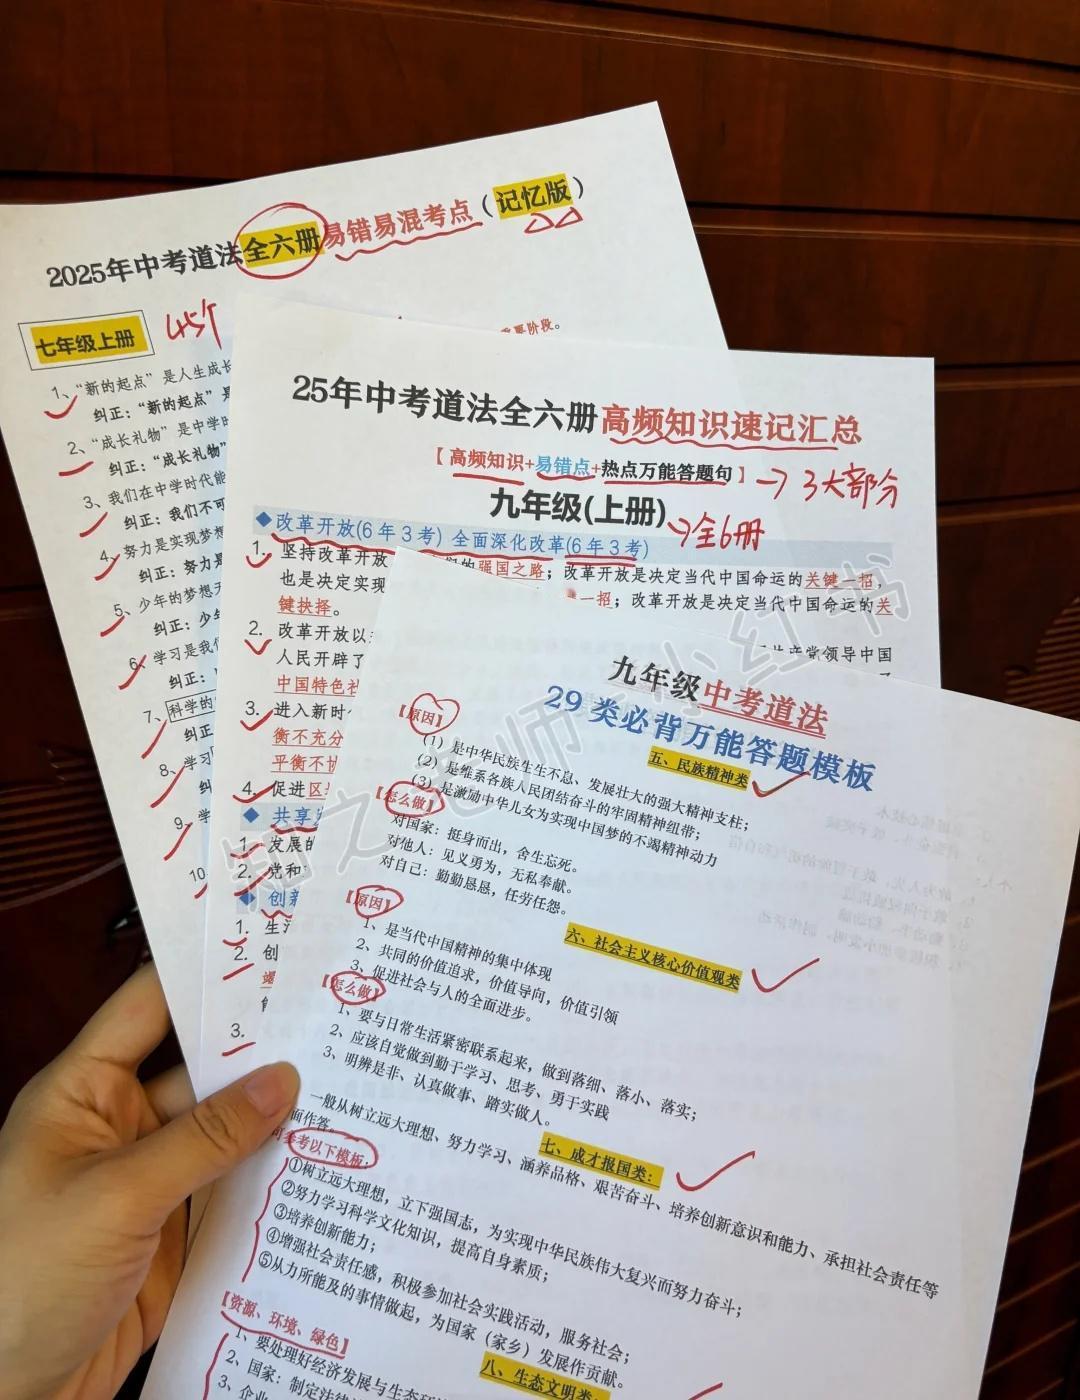 2025年中考道法全六册易错易混考点（记忆版）
七年级上册
45个
要阶段。
1、“新的起点”是人生成长
纠正：“新的起点”是
2、“成长礼物”是中学时
纠正：“成长礼物”
3、我们在中学时代能
纠正：我们不可
4、努力是实现梦想
纠正：努力是
5、少年的梦想无
纠正：少年
6、学习是我们
纠正：
7、科学的
纠正
8、学习
纠正
9、学
10、
25年中考道法全六册高频知识速记汇总
【高频知识+易错点+热点万能答题句】
→3大部分
九年级(上册)
→全6册
◆改革开放(6年3考) 全面深化改革(6年3考)
1. 坚持改革开放 们的强国之路；改革开放是决定当代中国命运的关键一招，
也是决定实现 一招；改革开放是决定当代中国命运的关
键抉择。
2. 改革开放以来 共产党领导中国
人民开辟了
中国特色社
3. 进入新时代
衡不充分
平衡不协
4. 促进区域
◆共享发
1. 发展的
2. 党和
◆创新
1. 生活
2. 创
3.
九年级中考道法
29类必背万能答题模板
五、民族精神类
【原因】
（1）是中华民族生生不息、发展壮大的强大精神支柱；
（2）是维系各族人民团结奋斗的牢固精神纽带；
（3）是激励中华儿女为实现中国梦的不竭精神动力
【怎么做】
对国家：挺身而出，舍生忘死。
对他人：见义勇为，无私奉献。
对自己：勤勤恳恳，任劳任怨。
六、社会主义核心价值观类
【原因】
1、是当代中国精神的集中体现
2、共同的价值追求，价值导向，价值引领
3、促进社会与人的全面进步。
【怎么做】
1、要与日常生活紧密联系起来，做到落细、落小、落实；
2、应该自觉做到勤于学习、思考、勇于实践
3、明辨是非、认真做事、踏实做人。
七、成才报国类：
一般从树立远大理想、努力学习、涵养品格、艰苦奋斗、培养创新意识和能力、承担社会责任等
面作答。
可参考以下模板：
①树立远大理想，立下强国志，为实现中华民族伟大复兴而努力奋斗；
②努力学习科学文化知识，提高自身素质；
③培养创新能力；
④增强社会责任感，积极参加社会实践活动，服务社会；
⑤从力所能及的事情做起，为国家（家乡）发展作贡献。
八、生态文明类：
【资源、环境、绿色】
1、要处理好经济发展与生态环
2、国家：制定法律
3、企业
颖之老师 小红书